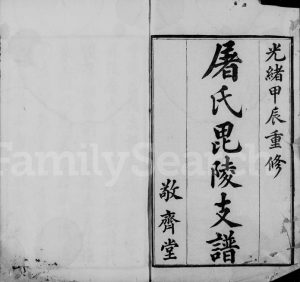 光緒甲辰重修
屠氏毘陵支譜
敬齊堂
FamilySearch